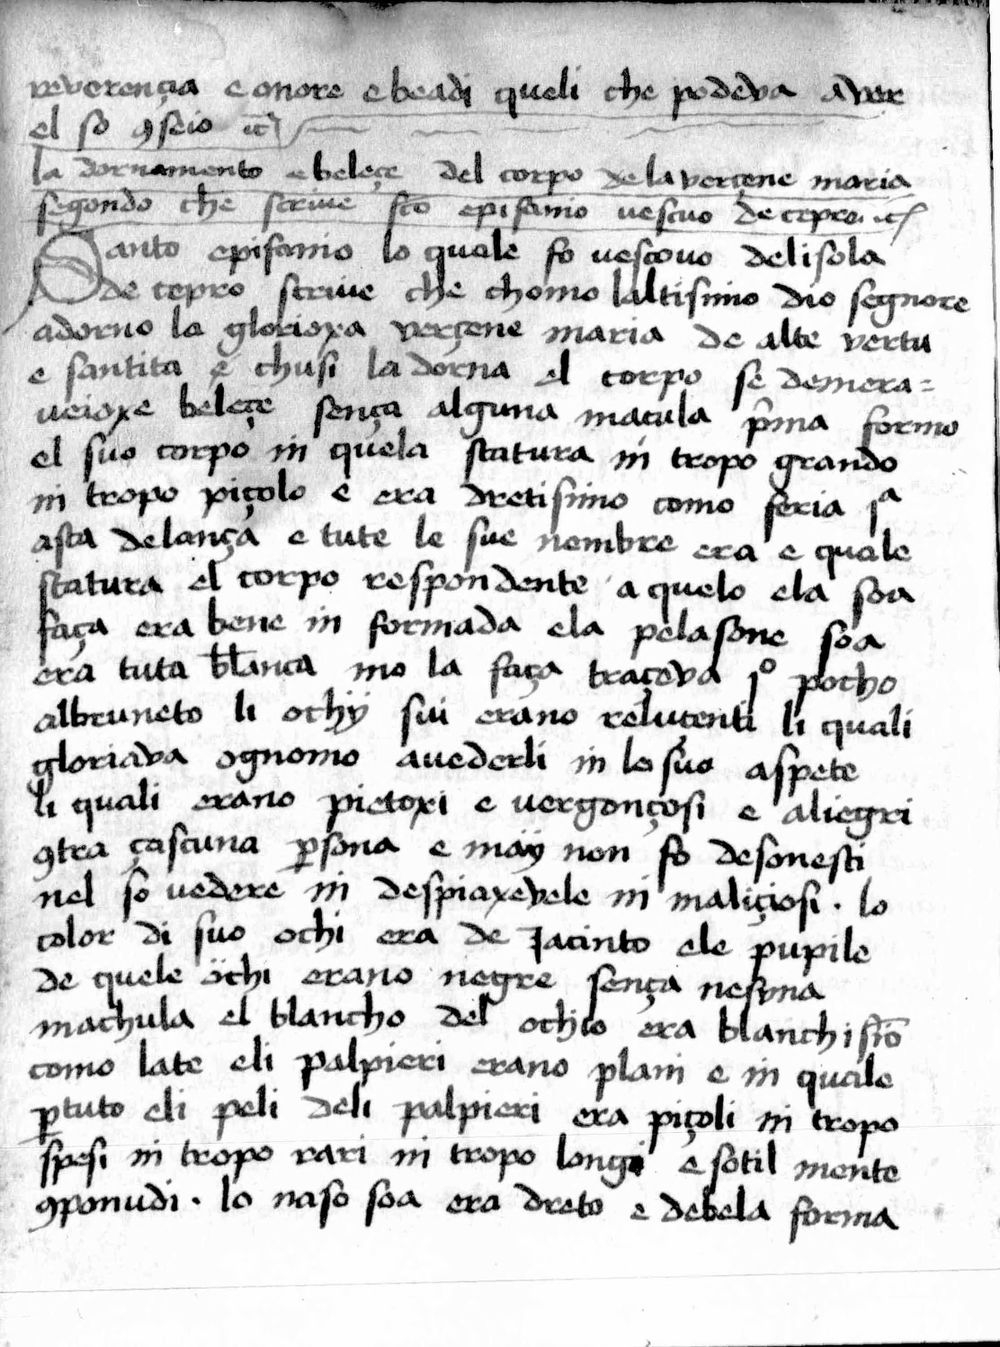 reverença e onore e beadi queli che podeva aver
el so 9seio etc̃
la dornamento e beleçe del corpo de la verçene maria
segondo che scrive scõ epifanio vescuo de cepro. etc̃
Santo epifanio lo quale fo vescovo delisola
de cepro scrive che chomo laltisimo dio segnore
adorno la glorioxa verçene maria de alte vertu
e santita e chusi la dorna el corpo se demera=
veioxe beleçe sença alguna macula p̃ma formo
el suo corpo in quela statura ni tropo grando
ni tropo piçolo e era dretisimo como seria jª
asta de lança e tute le sue nembre era e quale
statura el corpo respondente a quelo ela soa
faça era bene in formada ela pelasone soa
era tuta blanca mo la faça traçeva jº pocho
albruneto li ochÿ sui erano reluçenti li quali
gloriava ognomo avederli in lo suo aspete
li quali erano pietoxi e vergonçosi e aliegri
9tra çascuna p̱sona e maÿ non fo desonesti
nel so vedere ni despiaxevele ni maliçiosi. lo
color di suo ochi era de Jacinto ele pupile
de quele ochi erano negre sença nesuna
machula el blancho del ochio era blanchisiõ
como late eli palpieri erano plani e in quale
p̱tuto eli peli deli palpieri era piçoli ni tropo
spesi ni tropo rari ni tropo longi e sotil mente
9ponudi. lo naso soa era dreto e debela forma